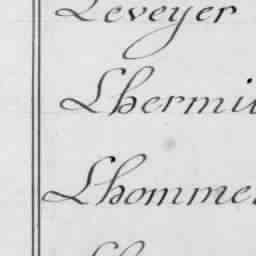 Leveyer
Lhermi
Lhomme